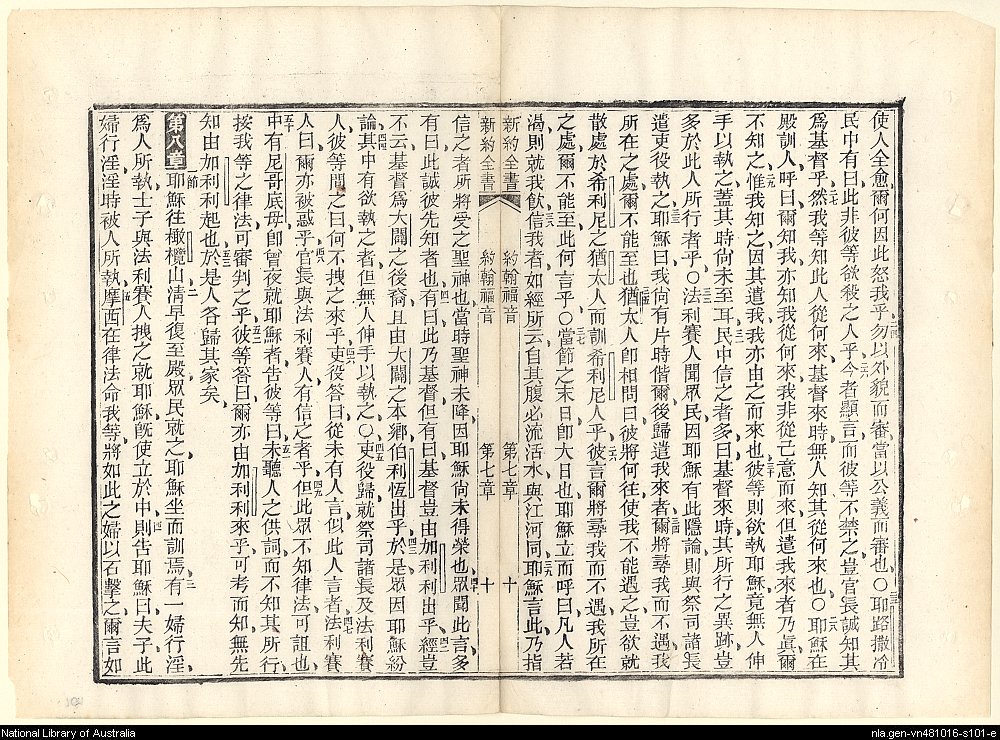 使人全愈爾何因此怒我乎勿以外貌而審當以公義而審也○耶路撒冷
民中有曰此非彼等欲殺之人乎今者顯言而彼等不禁之豈官長誠知其
爲基督乎然我等知此人從何來基督來時無人知其從何來也○耶穌在
殿訓人呼曰爾知我亦知我從何來我非從己意而來但遣我來者乃眞爾
不知之惟我知之因其遣我我亦由之而來也彼等則欲執耶穌竟無人伸
手以執之蓋其時尚未至耳民中信之者多曰基督來時其所行之異跡豈
多於此人所行者乎○法利賽人聞眾民因耶穌有此隱論則與祭司諸長
遣吏役執之耶穌曰我尚有片時偕爾後歸遣我來者爾將尋我而不遇我
所在之處爾不能至也猶太人卽相問曰彼將何往使我不能遇之豈欲就
散處於希利尼之猶太人而訓希利尼人乎彼言爾將尋我而不遇我所在
之處爾不能至此何言乎○當節之末日卽大日也耶穌立而呼曰凡人若
渴則就我飲信我者如經所云自其腹必流活水與江河同耶穌言此乃指
新約全書 約翰福音 第七章 十
新約全書 約翰福音 第七章 十
信之者所將受之聖神也當時聖神未降因耶穌尚未得榮也眾聞此言多
有曰此誠彼先知者也有曰此乃基督但有曰基督豈由加利利出乎經豈
不云基督爲大闢之後裔且由大闢之本鄉伯利恆出乎於是眾因耶穌紛
論其中有欲執之者但無人伸手以執之○吏役歸就祭司諸長及法利賽
人彼等問之曰何不拽之來乎吏役答曰從未有人言似此人言者法利賽
人曰爾亦被惑乎官長與法利賽人有信之者乎但此眾不知律法可詛也
中有尼哥底母卽曾夜就耶穌者告彼等曰未聽人之供詞而不知其所行
按我等之律法可審判之乎彼等答曰爾亦由加利利來乎可考而知無先
知由加利利起也於是人各歸其家矣
第八章 一節 耶穌往橄欖山清早復至殿眾民就之耶穌坐而訓焉有一婦行淫
爲人所執士子與法利賽人拽之就耶穌旣使立於中則告耶穌曰夫子此
婦行淫淫時被人所執摩西在律法命我等將如此之婦以石擊之爾言如
National Library of Australia
nla.gen-vn481016-s101-e